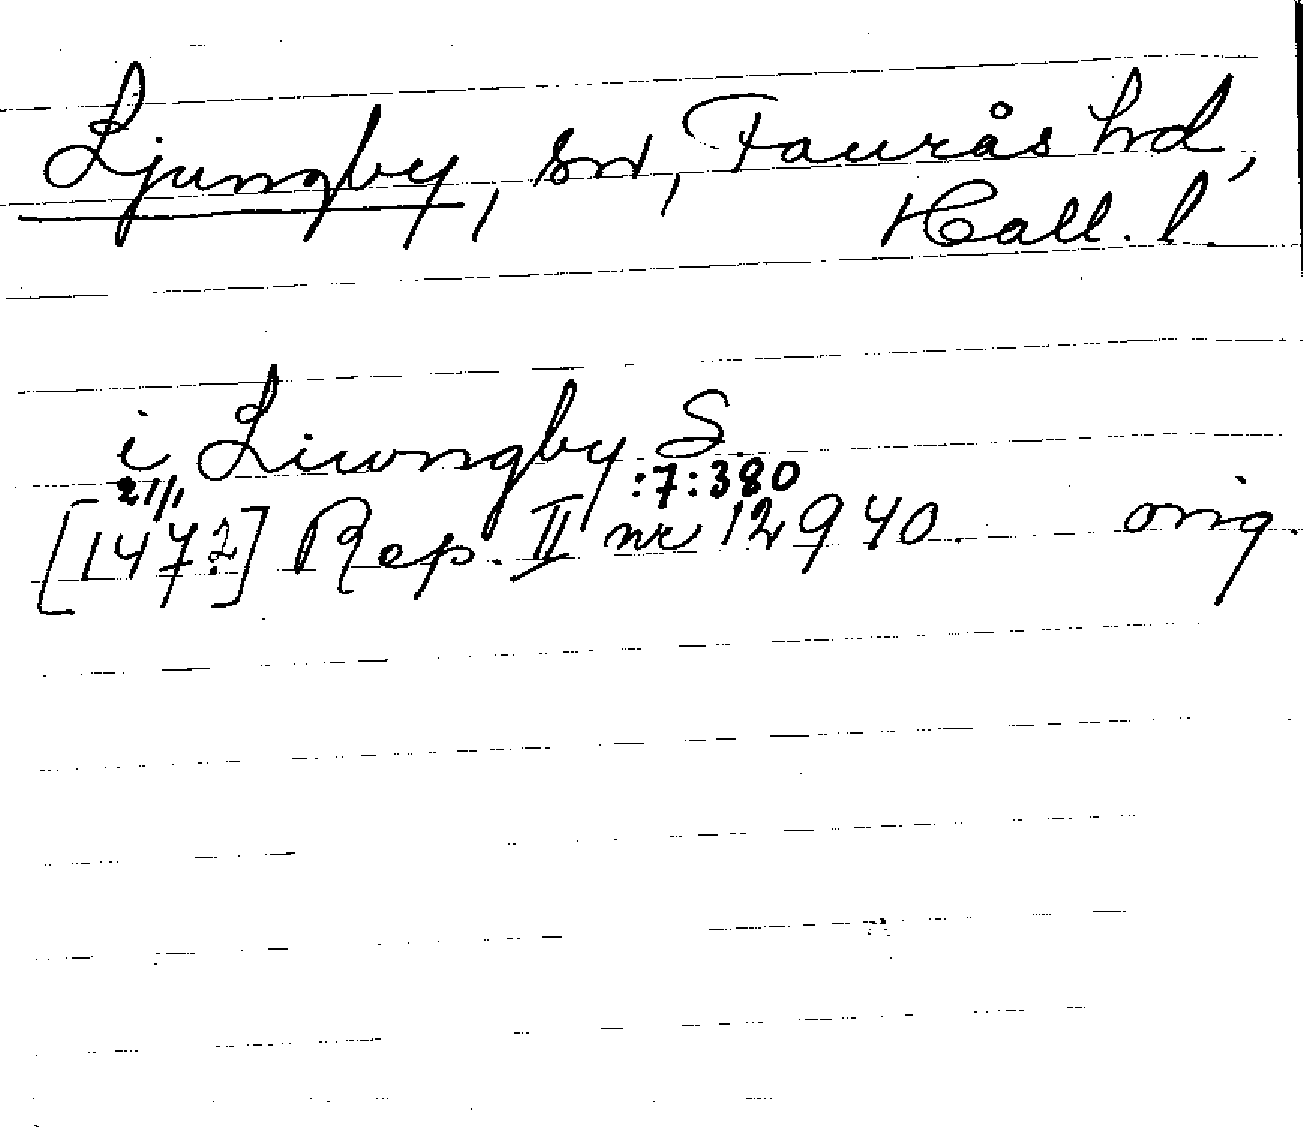 Ljungby, sn, Faurås hd,
Hall. l.
i Liwngby S.
21/1 :7:380
[1472] Rep. II nr 12940. orig.